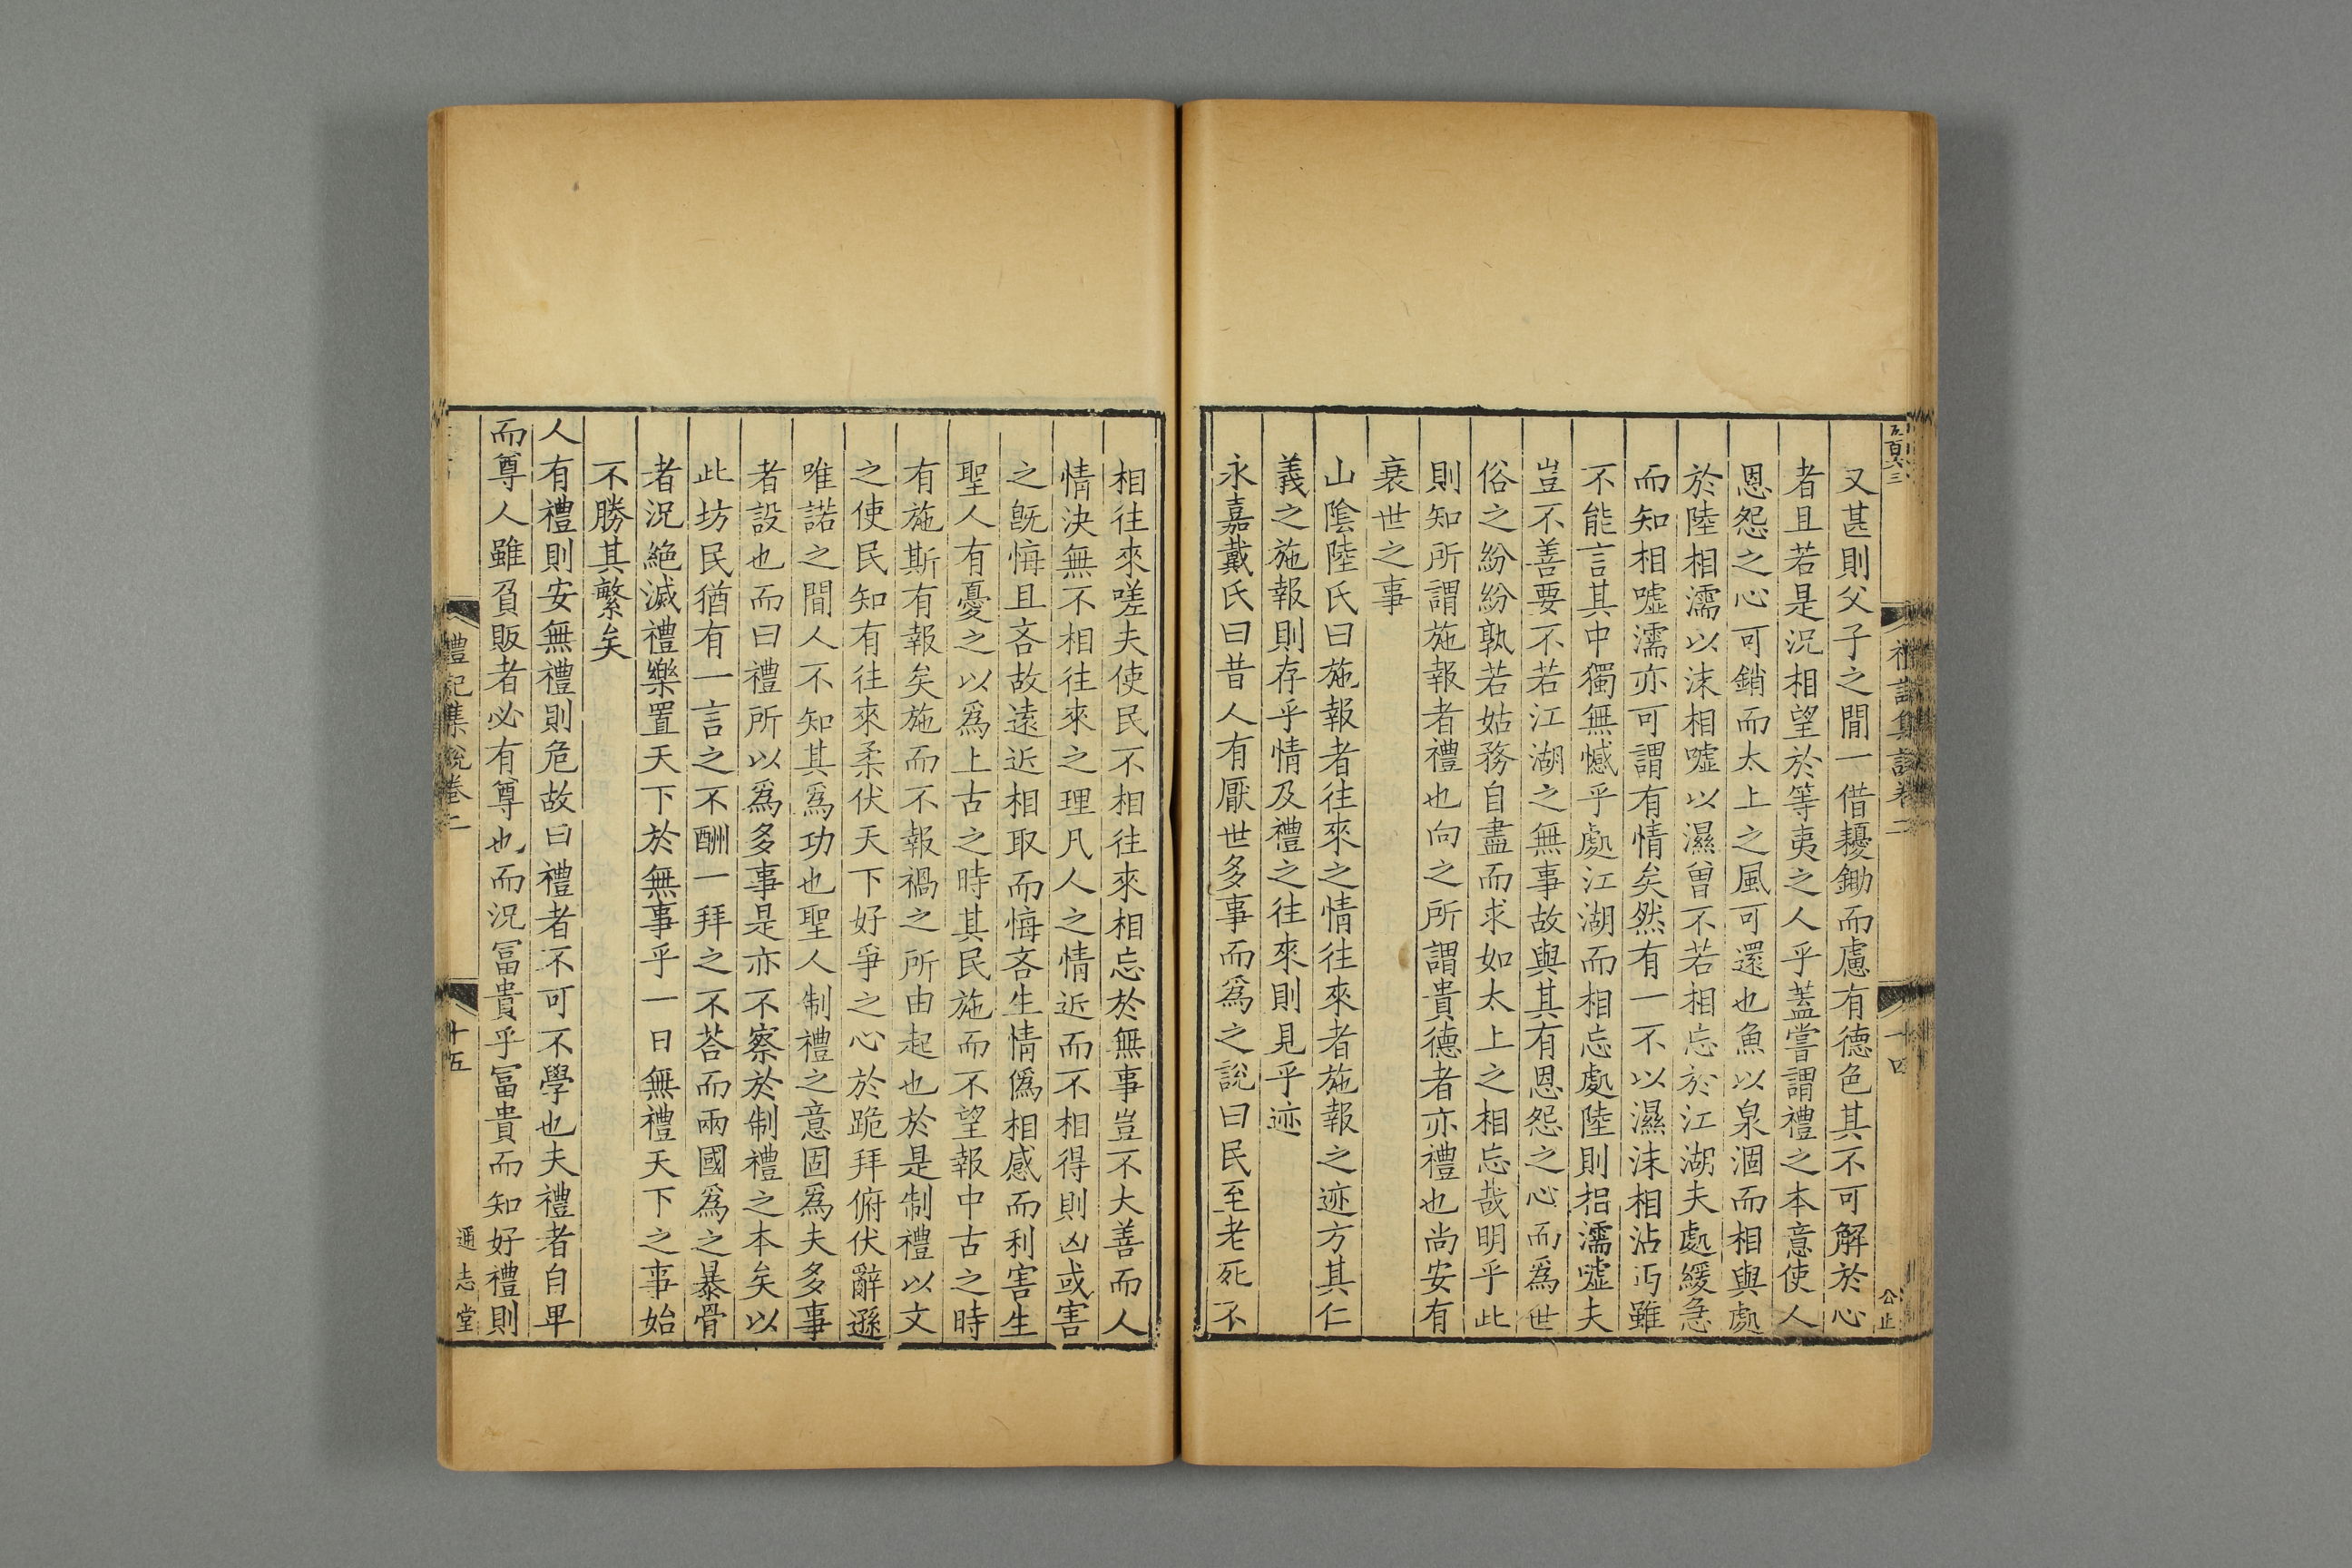 五百六三
禮記集說卷二
十四
公止
又甚則父子之間一借耰鋤而慮有德色其不可解於心
者且若是況相望於等夷之人乎蓋嘗謂禮之本意使人
恩怨之心可銷而太上之風可還也魚以泉涸而相與處
於陸相濡以沫相噓以濕曾不若相忘於江湖夫處緩急
而知相噓濡亦可謂有情矣然有一不以濕沫相沾丐雖
不能言其中獨無憾乎處江湖而相忘處陸則相濡噓夫
豈不善要不若江湖之無事故與其有恩怨之心而為世
俗之紛紛孰若姑務自盡而求如太上之相忘哉明乎此
則知所謂施報者禮也向之所謂貴德者亦禮也尚安有
衰世之事
山陰陸氏曰施報者往來之情往來者施報之迹方其仁
義之施報則存乎情及禮之往來則見乎迹
永嘉戴氏曰昔人有厭世多事而爲之說曰民至老死不
相往來嗟夫使民不相往來相忘於無事豈不大善而人
情決無不相往來之理凡人之情近而不相得則凶或害
之旣悔且吝故遠近相取而悔吝生情僞相感而利害生
聖人有憂之以爲上古之時其民施而不望報中古之時
有施斯有報矣施而不報禍之所由起也於是制禮以文
之使民知有往來柔伏天下好爭之心於跪拜俯伏辭遜
唯諾之間人不知其爲功也聖人制禮之意固爲夫多事
者設也而曰禮所以爲多事是亦不察於制禮之本矣以
此坊民猶有一言之不酬一拜之不荅而兩國爲之暴骨
者況絕滅禮樂置天下於無事乎一日無禮天下之事始
不勝其繁矣
人有禮則安無禮則危故曰禮者不可不學也夫禮者自卑
而尊人雖負販者必有尊也而況冨貴乎冨貴而知好禮則
禮記集說卷二
十五
通志堂